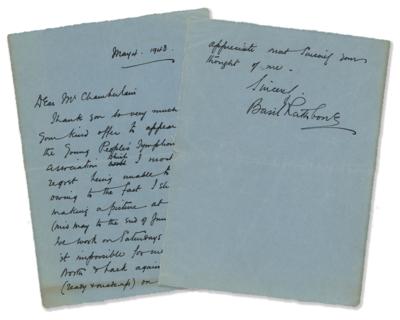 May 4. 1943.
Dear Mr Chamberlain
Thank you so very much
your kind offer to appear
the Young People's Symphon
Association I most
regret being unable to
owing to the fact I sh
making a picture at
this may to the end of Jun
We work on Saturdays
it impossible for me
North & back again
(ready & made-up) on
appreciate most sincerely your
thought of me -
Sincerely
Basil Rathbone